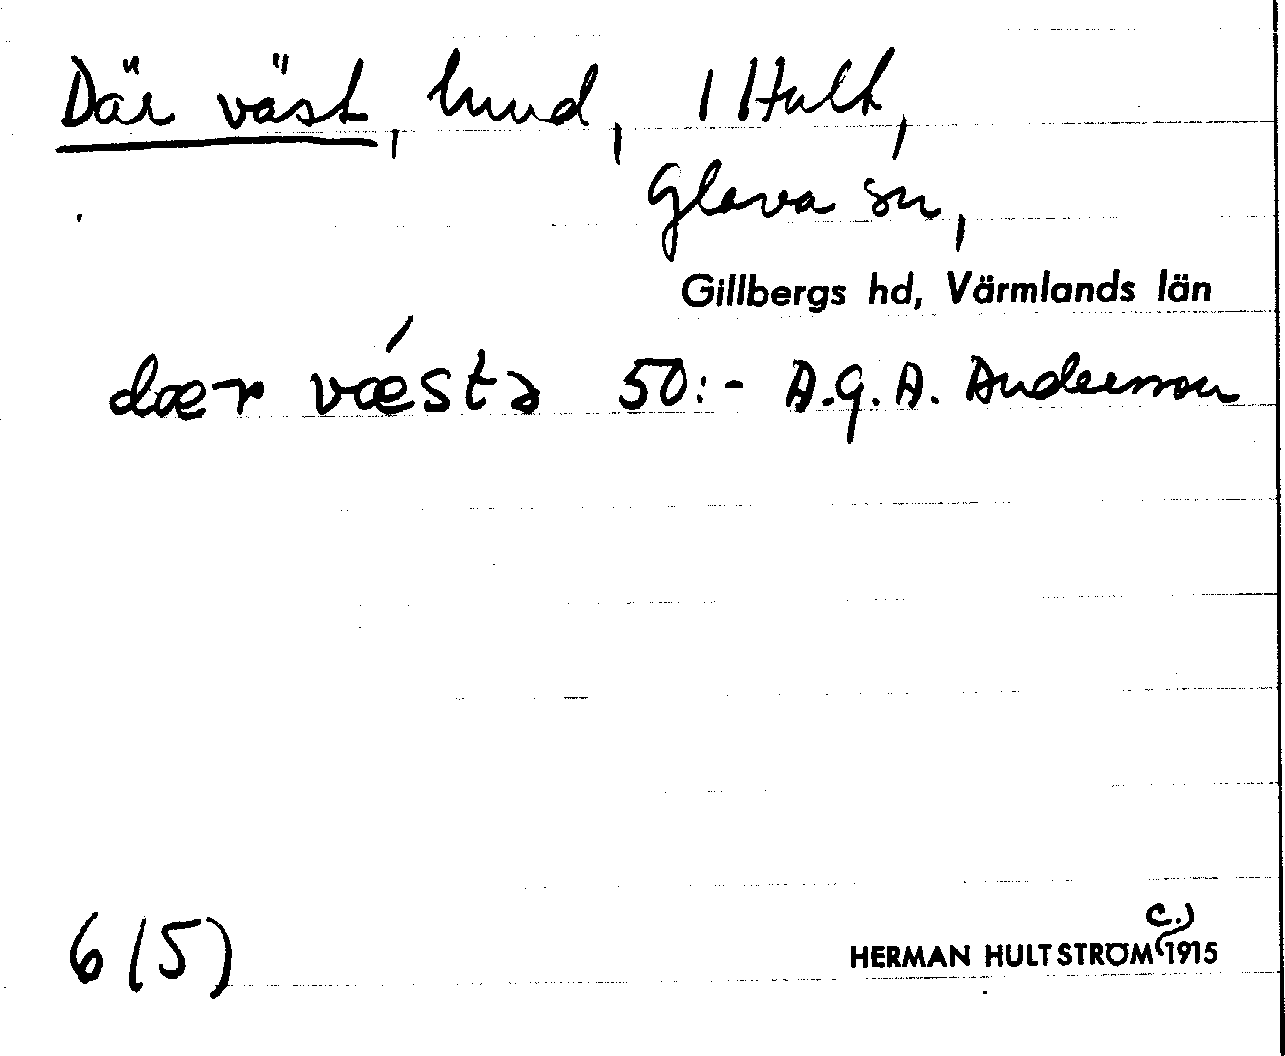 Där väst, lund, 1 Hult,
Glava sn,
Gillbergs hd, Värmlands län
dær vǽstə 50:- A.G.A. Andersson
6 (5)
c.)
HERMAN HULTSTRÖM 1915